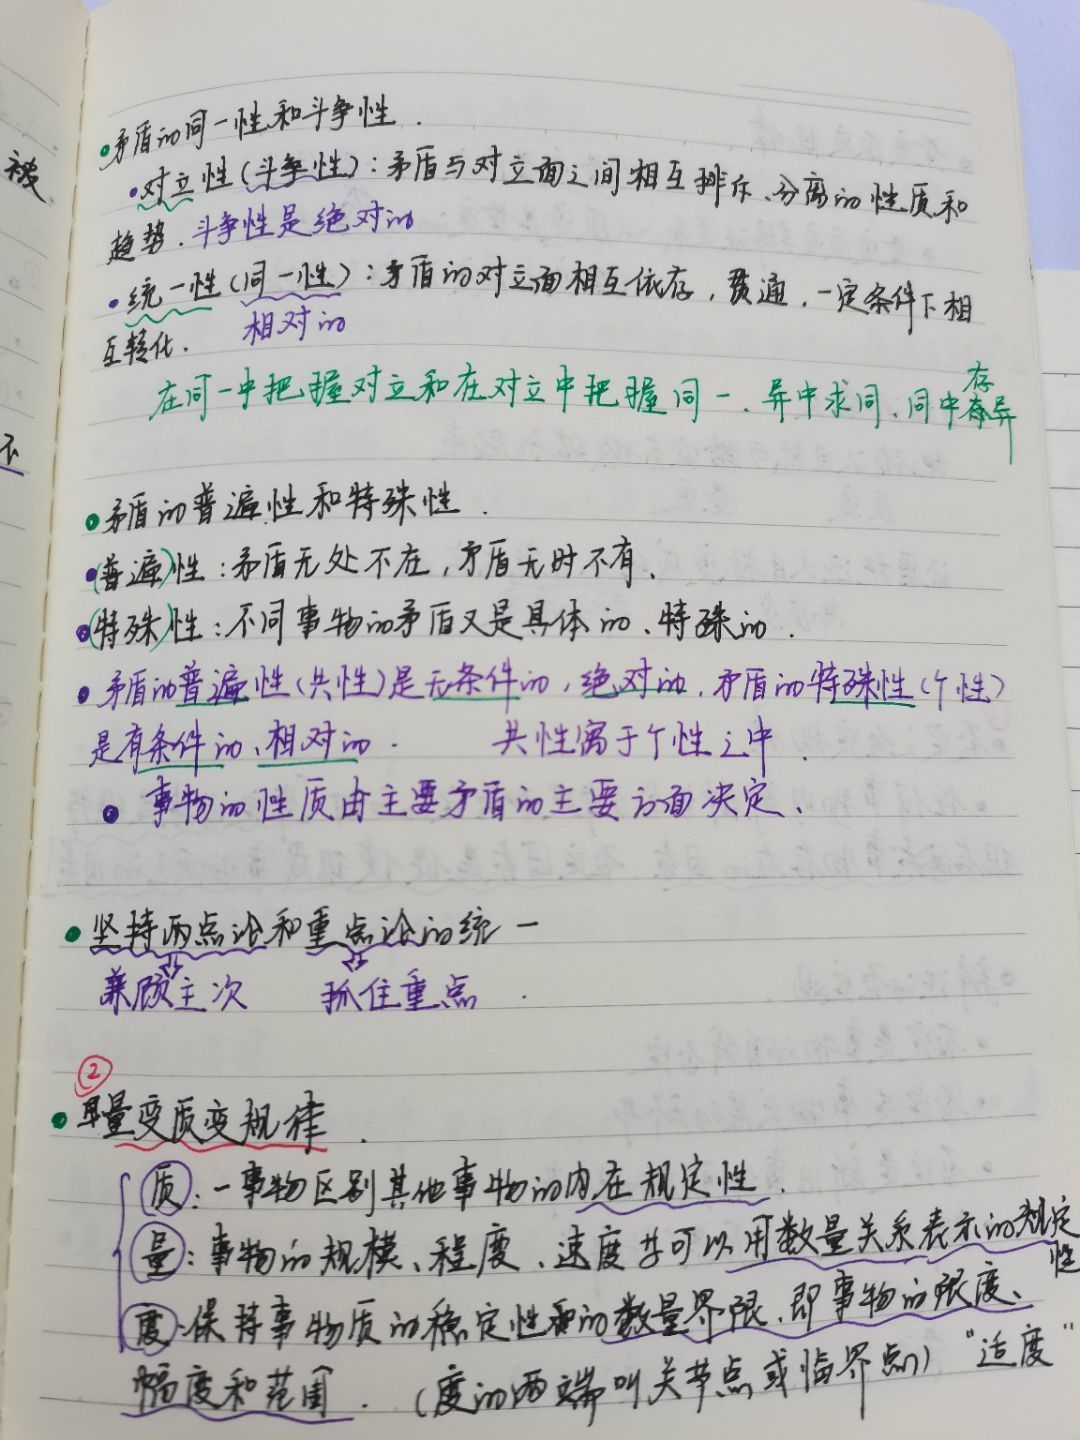 被
不
•矛盾的同一性和斗争性.
•对立性(斗争性):矛盾与对立面之间相互排斥、分离的性质和
趋势.斗争性是绝对的
•统一性(同一性):矛盾的对立面相互依存,贯通,一定条件下相
互转化. 相对的
在同一中把握对立和在对立中把握同一、异中求同,同中存异
•矛盾的普遍性和特殊性.
•(普遍)性:矛盾无处不在,矛盾无时不有.
•(特殊)性:不同事物的矛盾又是具体的、特殊的.
•矛盾的普遍性(共性)是无条件的,绝对的,矛盾的特殊性(个性)
是有条件的、相对的. 共性寓于个性之中.
•事物的性质由主要矛盾的主要方面决定、
•坚持两点论和重点论的统一
兼顾主次 抓住重点.
②
•量变质变规律.
质:一事物区别其他事物的内在规定性.
量:事物的规模、程度、速度等可以用数量关系表示的规定
性
度:保持事物质的稳定性的数量界限,即事物的限度、
幅度和范围.(度的两端叫关节点或临界点)"适度"